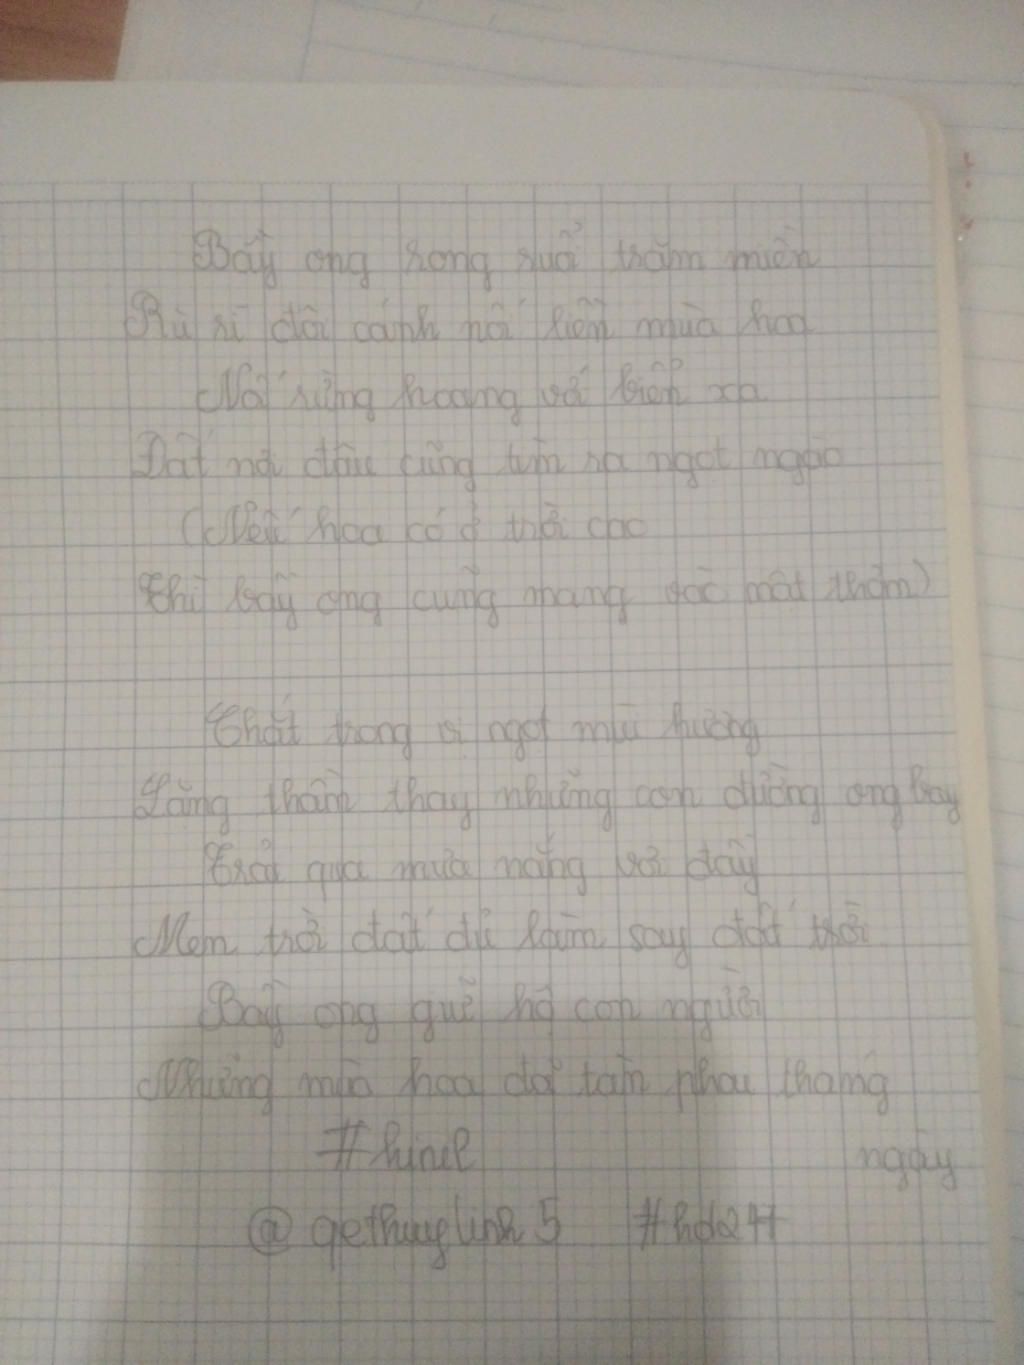 Bầy ong rong ruổi trăm miền
Rù rì đôi cánh nối liền mùa hoa
Nối rừng hoang với biển xa
Đất nơi đâu cũng tìm ra ngọt ngào
(Nếu hoa có ở trời cao
Thì bầy ong cũng mang vào mật thơm)
Chắt trong vị ngọt mùi hương
Lặng thầm thay những con đường ong bay
Trải qua mưa nắng vơi đầy
Men trời đất đủ làm say đất trời
Bầy ong giữ hộ con người
Những mùa hoa đã tàn phai tháng
ngày
#hinie
@ gethuylinh5 #hda247